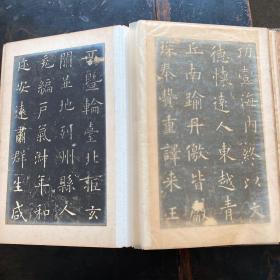 功壹海內終以文
德懷遠人東越青
丘南踰丹徼皆獻
琛奉贄重譯來王
西暨輪臺北拒玄
闕並地列州縣人
充編戶氣淑年和
迩安遠肅群生咸